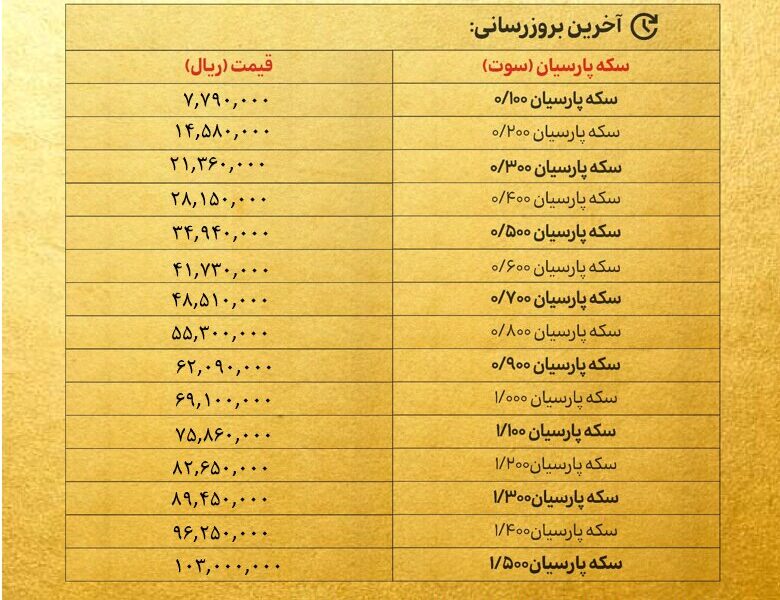 آخرین بروزرسانی:
سکه پارسیان (سوت) قیمت (ریال)
سکه پارسیان ۰/۱۰۰ ۷,۷۹۰,۰۰۰
سکه پارسیان ۰/۲۰۰ ۱۴,۵۸۰,۰۰۰
سکه پارسیان ۰/۳۰۰ ۲۱,۳۶۰,۰۰۰
سکه پارسیان ۰/۴۰۰ ۲۸,۱۵۰,۰۰۰
سکه پارسیان ۰/۵۰۰ ۳۴,۹۴۰,۰۰۰
سکه پارسیان ۰/۶۰۰ ۴۱,۷۳۰,۰۰۰
سکه پارسیان ۰/۷۰۰ ۴۸,۵۱۰,۰۰۰
سکه پارسیان ۰/۸۰۰ ۵۵,۳۰۰,۰۰۰
سکه پارسیان ۰/۹۰۰ ۶۲,۰۹۰,۰۰۰
سکه پارسیان ۱/۰۰۰ ۶۹,۱۰۰,۰۰۰
سکه پارسیان ۱/۱۰۰ ۷۵,۸۶۰,۰۰۰
سکه پارسیان۱/۲۰۰ ۸۲,۶۵۰,۰۰۰
سکه پارسیان۱/۳۰۰ ۸۹,۴۵۰,۰۰۰
سکه پارسیان۱/۴۰۰ ۹۶,۲۵۰,۰۰۰
سکه پارسیان۱/۵۰۰ ۱۰۳,۰۰۰,۰۰۰